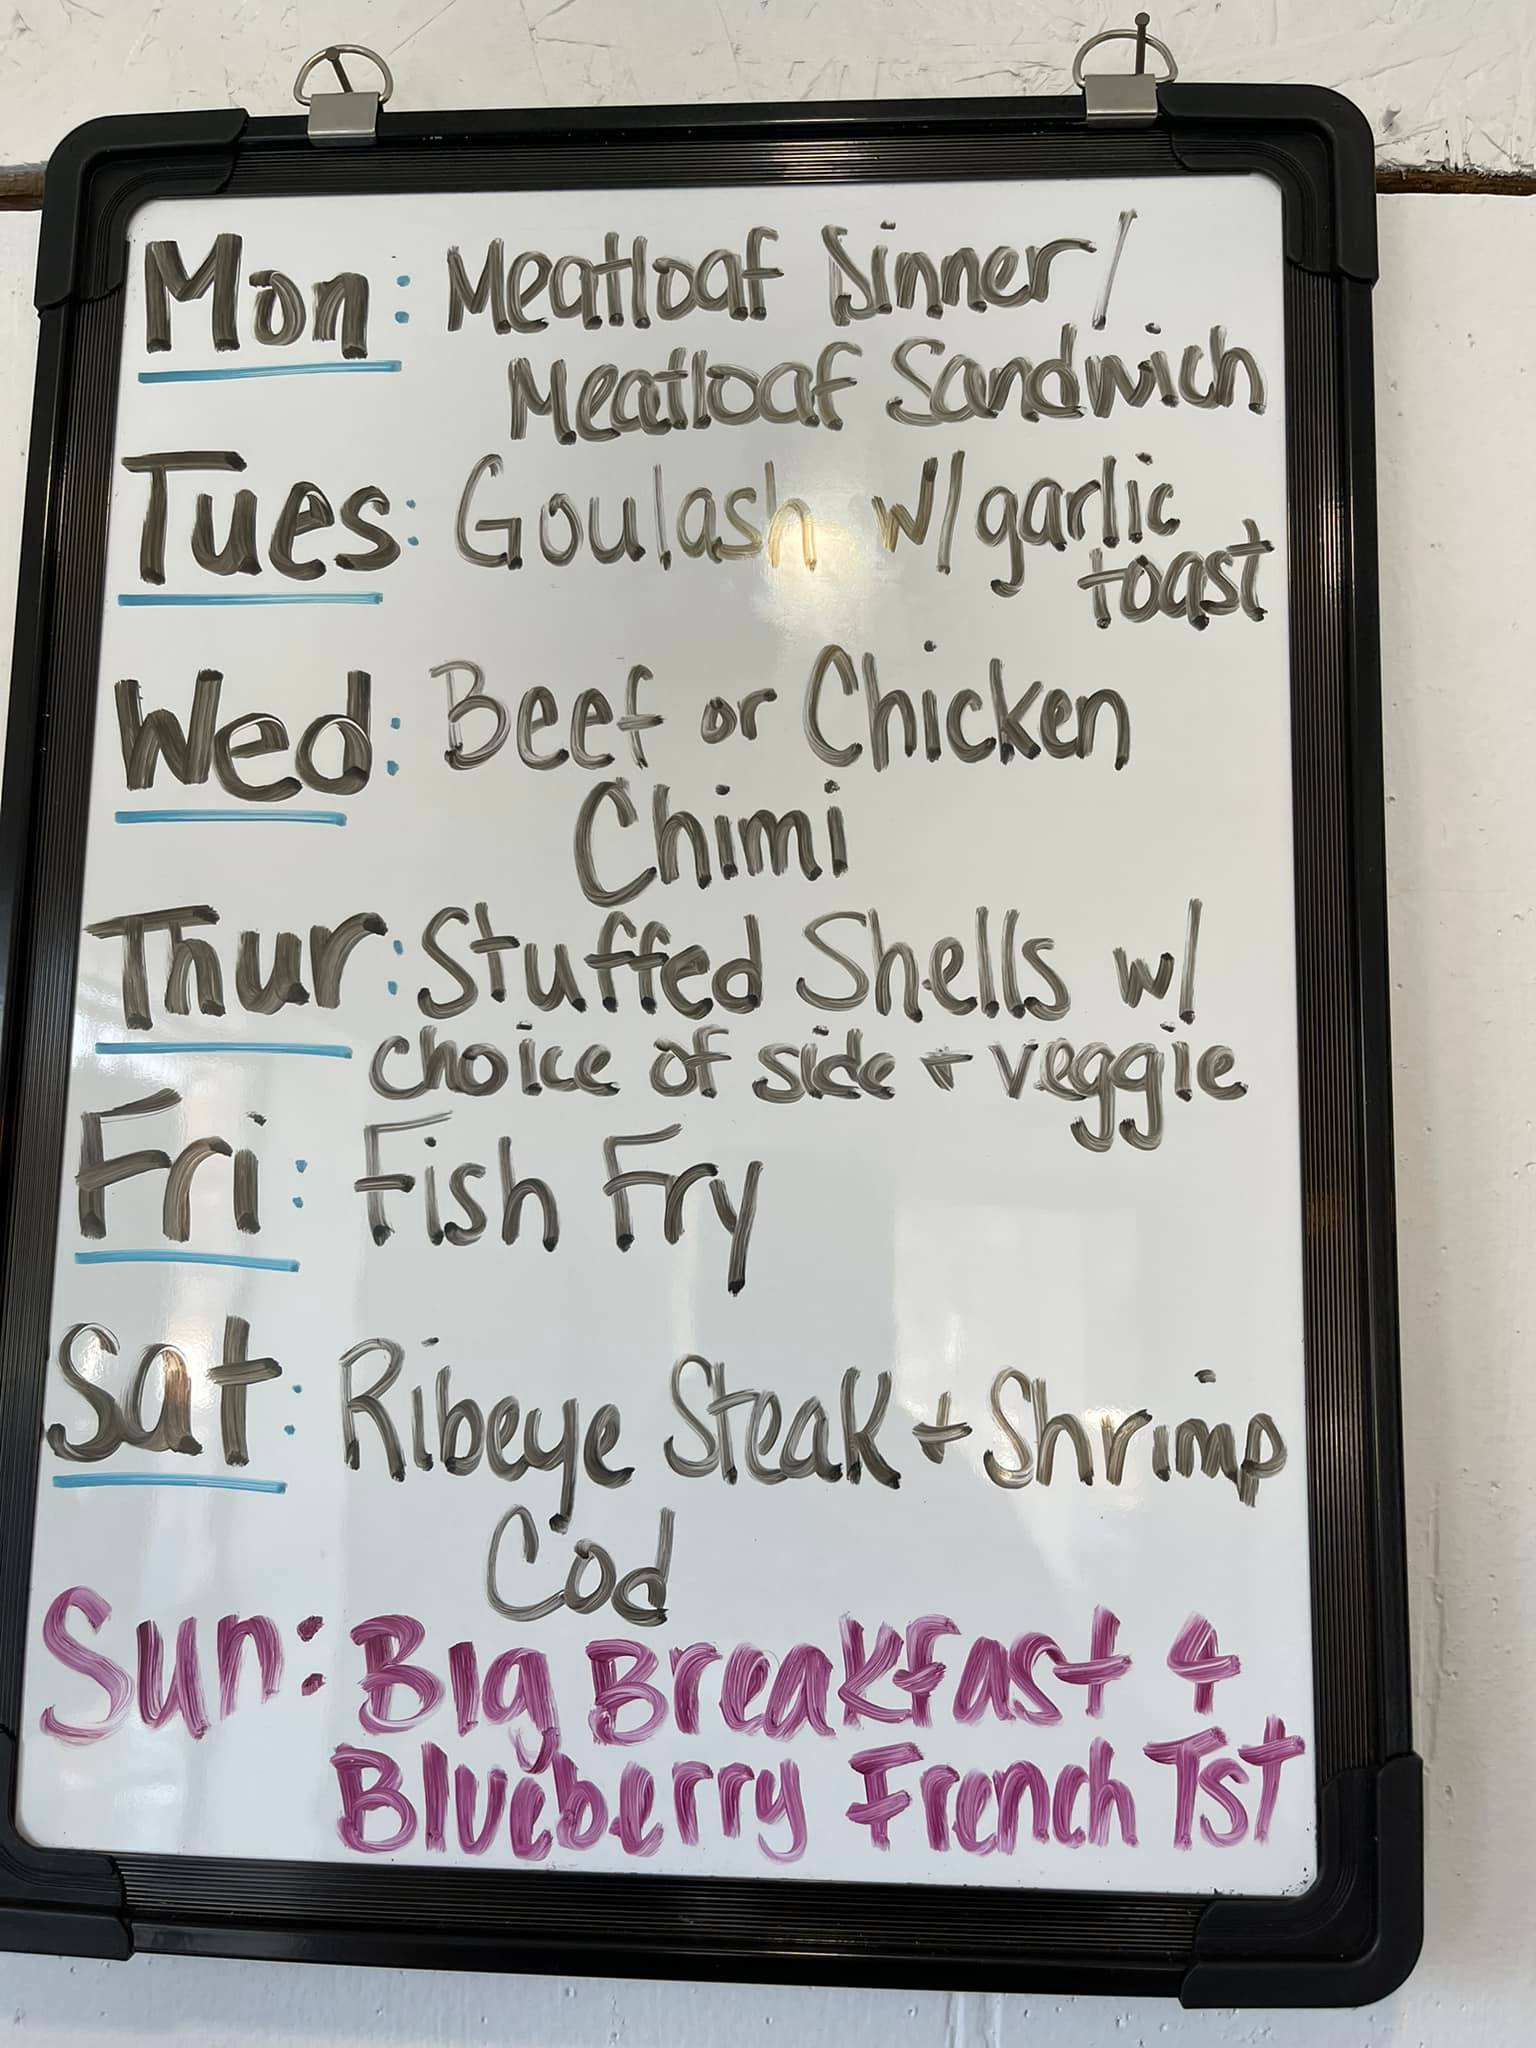 Mon: Meatloaf Dinner/
Meatloaf Sandwich
Tues: Goulash w/ garlic
toast
Wed: Beef or Chicken
Chimi
Thur: Stuffed Shells w/
choice of side + veggie
Fri: Fish Fry
Sat: Ribeye Steak + Shrimp
Cod
Sun: Big Breakfast +
Blueberry French Tst